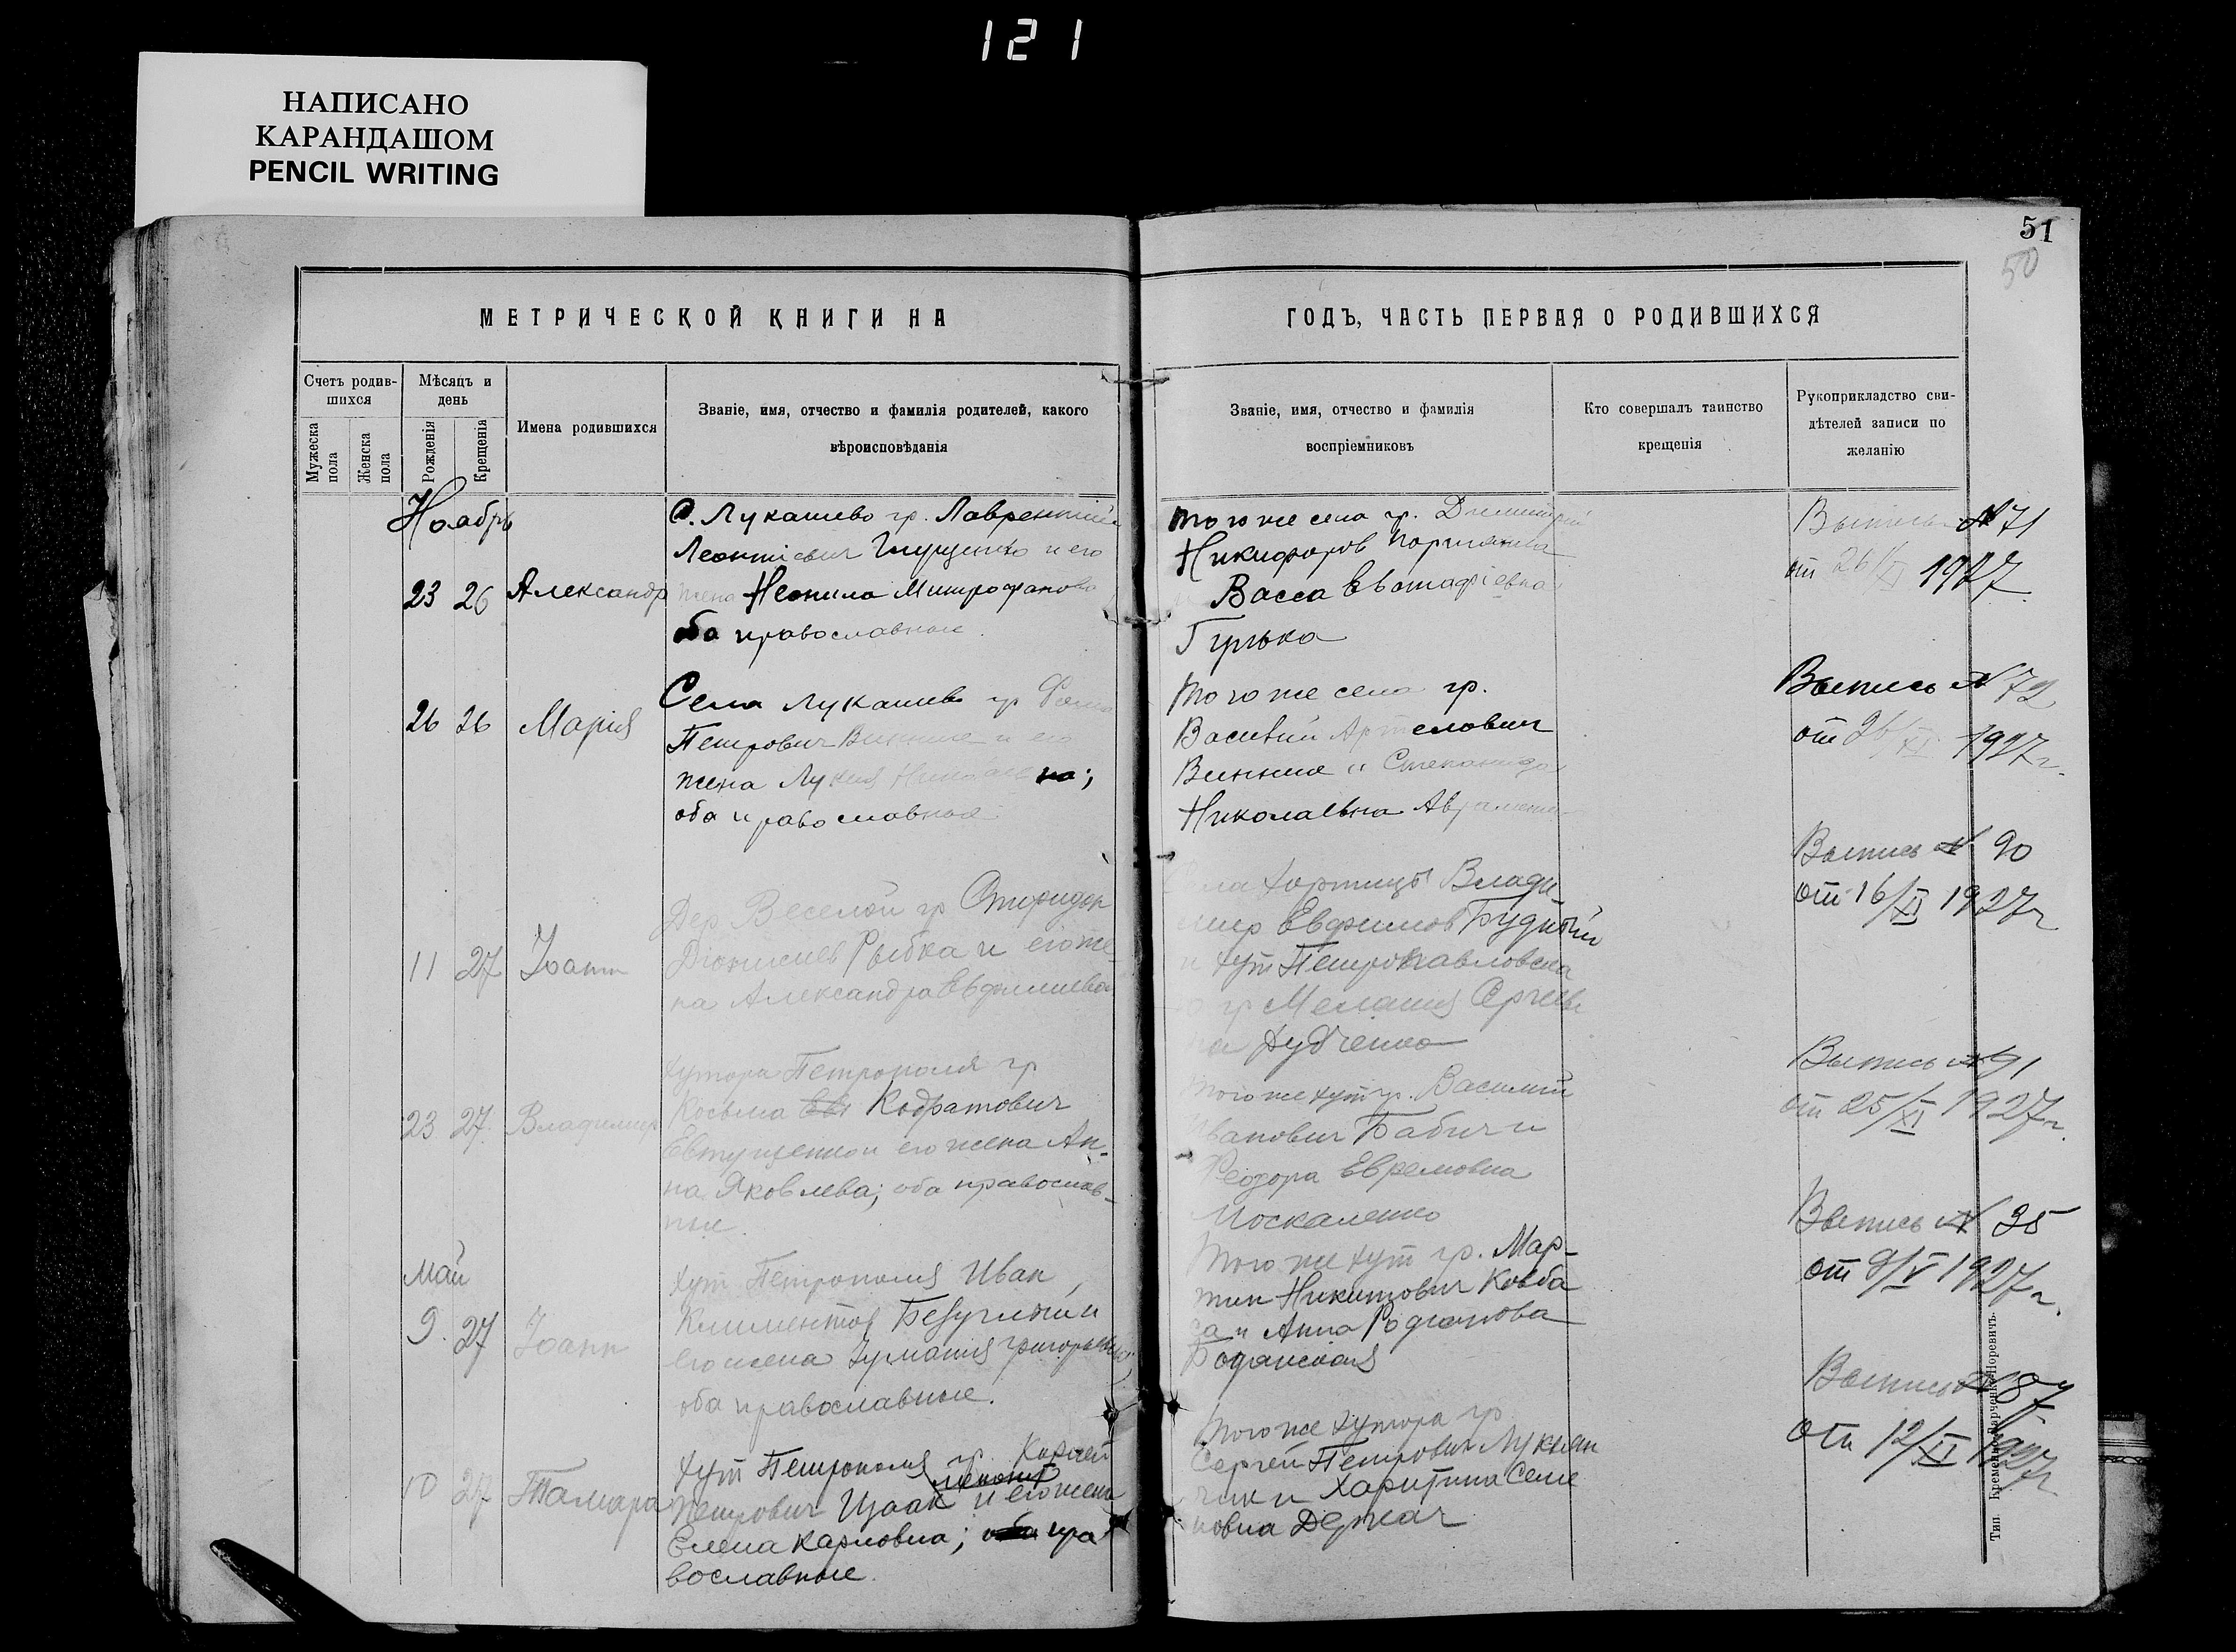 121
НАПИСАНО
КАРАНДАШОМ
PENCIL WRITING
51
50
МЕТРИЧЕСКОЙ КНИГИ НА
ГОДЪ, ЧАСТЬ ПЕРВАЯ О РОДИВШИХСЯ
Счетъ родив-
шихся
Мужеска
пола
Женска
пола
Мѣсяцъ и
день
Рожденія
Крещенія
Имена родившихся
Званіе, имя, отчество и фамилія родителей, какого
вѣроисповѣданія
Званіе, имя, отчество и фамилія
воспріемниковъ
Кто совершалъ таинство
крещенія
Рукоприкладство сви-
дѣтелей записи по
желанію
Ноябрь
23 26 Александр
С. Лукашево гр. Лаврентий
Леонтіевич и его
жена Неонила Митрофанова
оба православные.
того же села гр. Димитрий
Никифоров
и Васса Евстафіевна
Гурька
Выпись № 71
от 26/XI 1927
26 26 Мария
Села Лукашево гр
Петрович Винник и его
жена Лукия Николаевна;
оба православные
того же села гр.
Василий Артемович
Винник и Степанида
Николаевна
Выпись № 72
от 26/XI 1927г.
11 27 Іоанн
Дер Веселой гр Спиридон
Діонисиев Рыбка и его же
на Александра Евфимиева
села Хортицы Влади-
мир Евфимов Будный
и хут Петропавловска
гр Мелания Сергеев
на Дубченко
Выпись № 90
от 16/XI 1927г
23 27 Владимир
хутора Петрополя гр
Косьма Кодратович
Евтушенко и его жена Ан-
на Яковлева; оба православ-
ные.
того же хут гр. Василий
Иванович Бабич и
Феодора Евремовна
Москаленко
Выпись № 91
от 25/XI 1927г.
май
9. 27 Іоанн
хут Петрополя Иван
Климентов Безуглый и
его жена Григорьевна;
оба православные.
того же хут гр. Мар-
тин Никитович Ковба
са и Анна Родионова
Боданская
Выпись № 35
от 9/V 1927г.
10 27 Тамара
хут Петрополя гр. Корней
Петрович Исаак и его жена
Елена Карповна; оба пра
вославные.
того же хутора гр
Сергей Петрович Лукьян
чик и Харитина Семе
новна Держач
Выпись № 87
от 12/XI 1927г.
Тип. Кременецкая